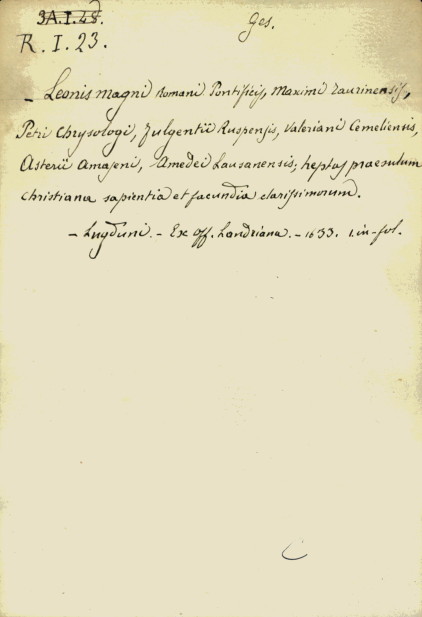 3A.I.48.
Ges.
R. I. 23.
— Leonis magni Romani Pontificis, Maximi Taurinensis,
Petri Chrysologi, Fulgentii Ruspensis, Valeriani Cemeliensis,
Asterii Amaseni, Amedei Lausanensis; heptas praesulum
christiana sapientia et facundia clarissimorum.
— Lugduni. — Ex off. Landriana. — 1633. 1. in-fol.